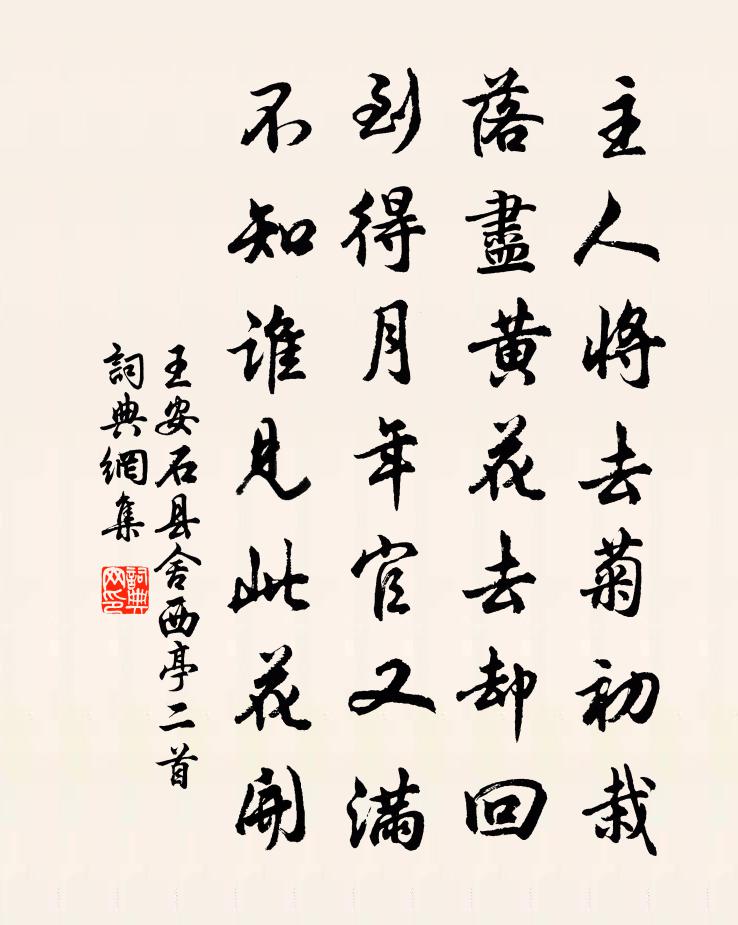 主人將去菊初栽
落盡黃花去却回
到得月年官又滿
不知誰見此花開
王安石县舍西亭二首
詞典網集
詞典
网印